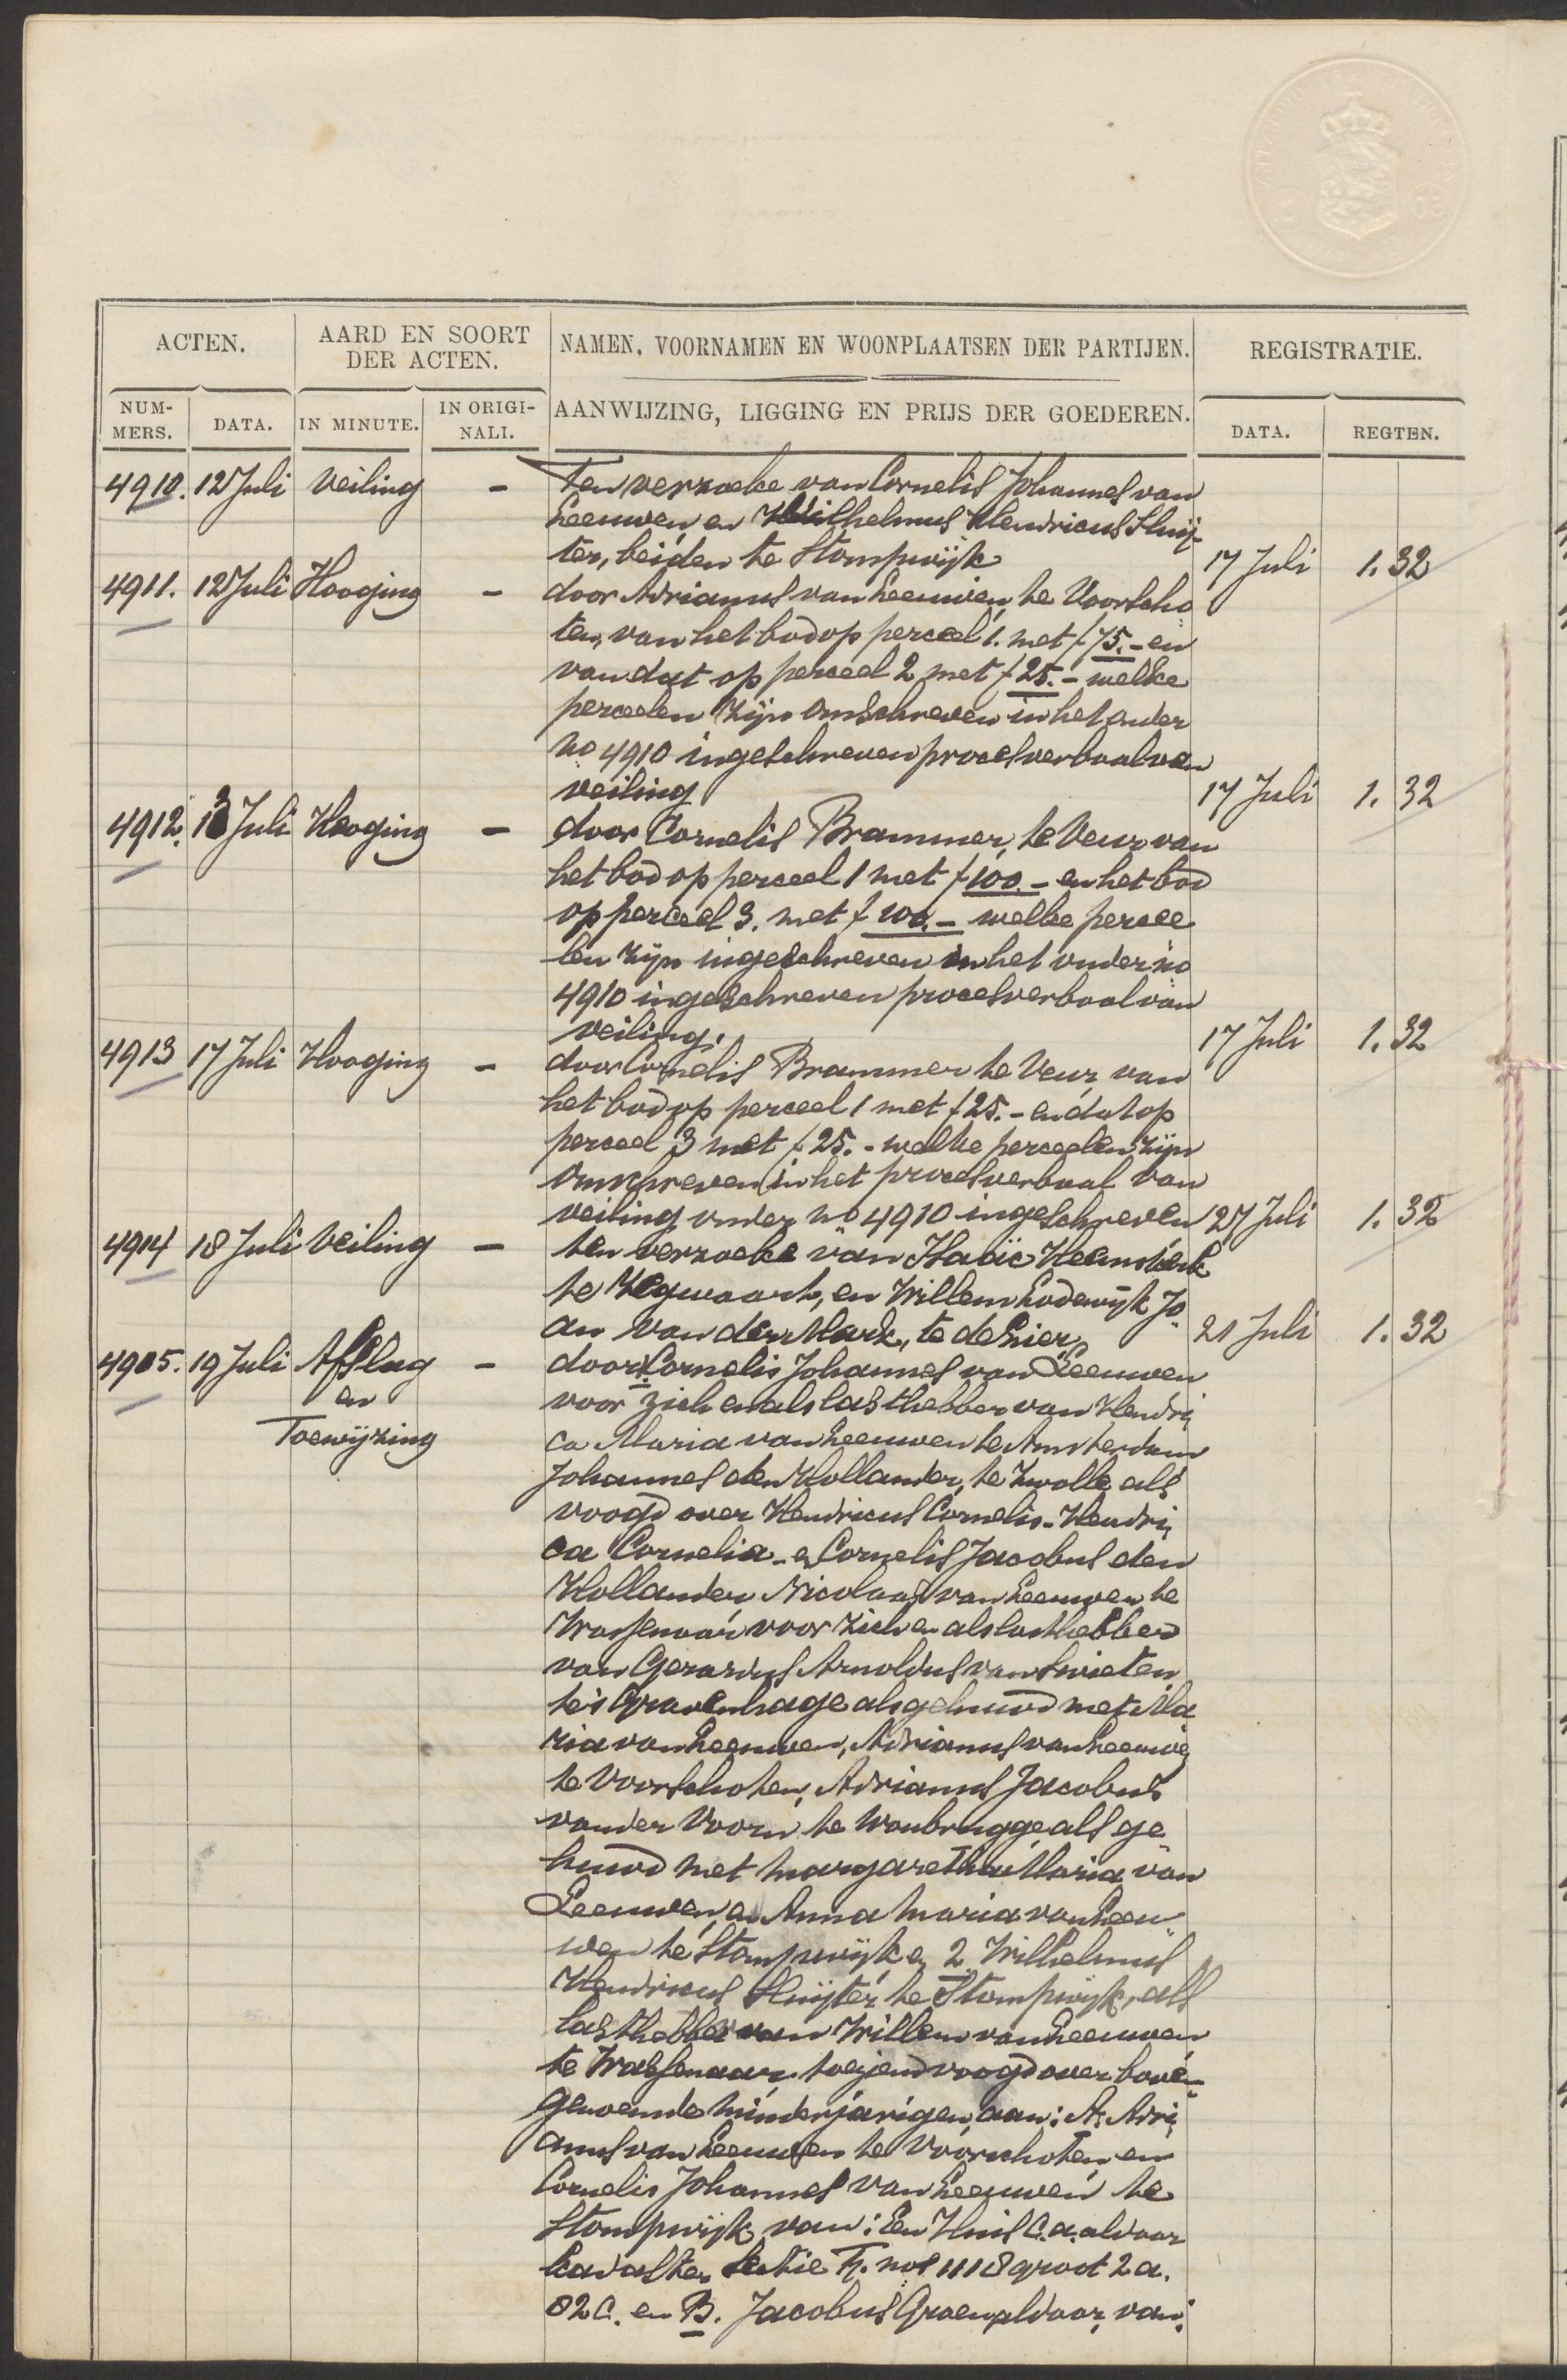 ACTEN.
AARD EN SOORT
DER ACTEN.
NAMEN, VOORNAMEN EN WOONPLAATSEN DER PARTIJEN.
REGISTRATIE.
NUM-
MERS.
DATA.
IN MINUTE.
IN ORIGI-
NALI.
AANWIJZING, LIGGING EN PRIJS DER GOEDEREN.
DATA.
REGTEN.
4910. 12 Juli Veiling - Ten verzoeke van Cornelis Johannes van
Leeuwen en Wilhelmus Hendricus Sluij-
ter, beiden te Stompwijk 17 Juli 1.32
4911. 12 Juli Hooging - door Adrianus van Leeuwen, te Voorscho
ten, van het bod op perceel 1. met f 75.- en
van dat op perceel 2 met f 25.- welke
perceelen zijn omschreven in het onder
no 4910 ingeschreven procesverbaal van
veiling 17 Juli 1.32
4912. 13 Juli Hooging - door Cornelis Brammer, te Veur van
het bod op perceel 1 met f 100.- en het bod
op perceel 3. met f 100.- welke percee
len zijn ingeschreven in het onder no
4910 ingeschreven procesverbaal van
veiling. 17 Juli 1.32
4913 17 Juli Hooging - door Cornelis Brammer te Veur van
het bod op perceel 1 met f 25.- en dat op
perceel 3 met f 25.- welke perceelen zijn
omschreven in het procesverbaal van
veiling onder no 4910 ingeschreven 27 Juli 1.32
4914 18 Juli Veiling - ten verzoeke van Isaäc Heemskerk
te Zegwaart, en Willem Lodewijk Jo
an van der Mark, te de Lier, 21 Juli 1.32
4915. 19 Juli Afslag - door 1. Cornelis Johannes van Leeuwen
en voor zich en als lasthebber van Hendri
Toewijzing ca Maria van Leeuwen te Amsterdam
Johannes den Hollander, te Zwolle als
voogd over Hendricus Cornelis - Hendri
ca Cornelia - en Cornelis Jacobus den
Hollander, Nicolaas van Leeuwen te
Wassenaar voor zich en als lasthebber
van Gerardus Arnoldus van Swieten
te 's Gravenhage als gehuwd met Ma
ria van Leeuwen, Adrianus van Leeuwen
te Voorschoten, Adrianus Jacobus
van der Voorn te Woubrugge als ge
huwd met Margaretha Maria van
Leeuwen, en Anna Maria van Leeu
wen te Stompwijk en 2. Wilhelmus
Hendricus Sluijter te Stompwijk, als
lasthebber van Willem van Leeuwen
te Wassenaar toeziend voogd over boven-
genoemde minderjarigen aan: A. Adri
anus van Leeuwen te Voorschoten en
Cornelis Johannes van Leeuwen te
Stompwijk van: Een Huis c.a. aldaar
kadaster sectie F. nos 1118 groot 2 a.
82 c. en B. Jacobus Groen aldaar, van: